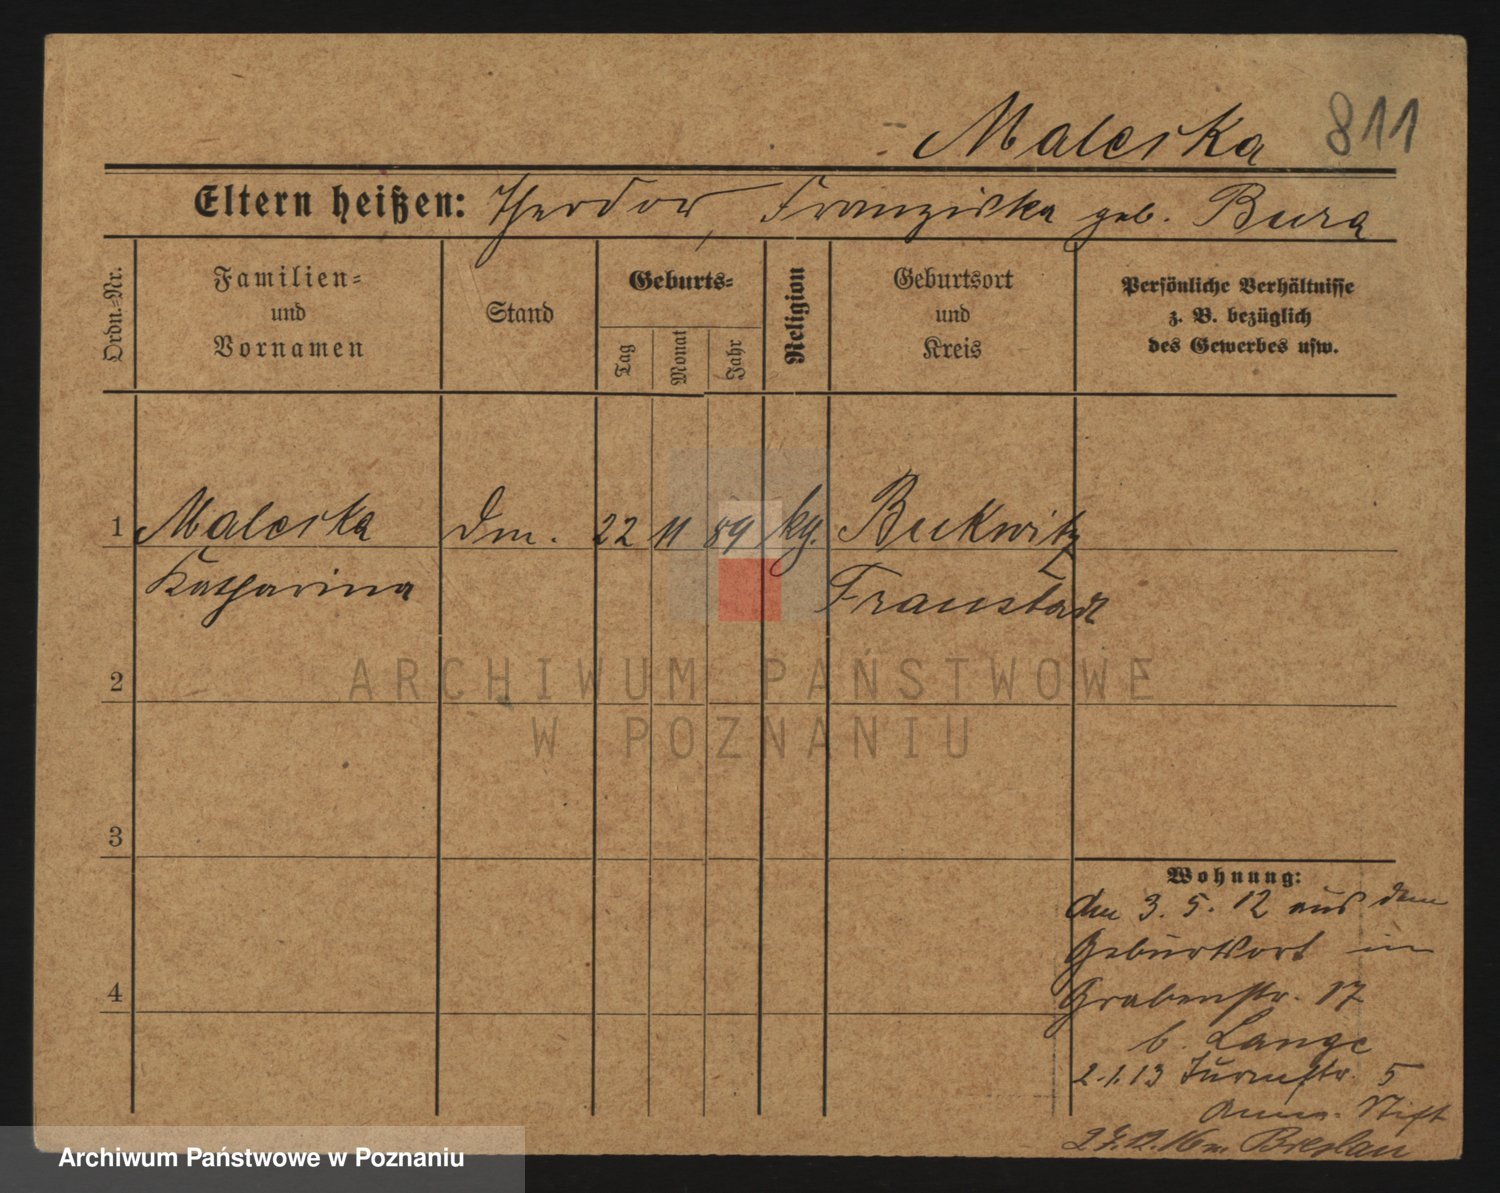 Maleska 811
Eltern heißen: Theodor, Franziska geb. Bura
Ordn.-Nr.
Familien-
und
Vornamen
Stand
Geburts-
Tag
Monat
Jahr
Religion
Geburtsort
und
Kreis
Persönliche Verhältnisse
z. B. bezüglich
des Gewerbes usw.
1 Maleska Dm. 22 11 89 kg. Bukwitz
Katharina Fraustadt
2
ARCHIWUM PAŃSTWOWE
W POZNANIU
3
Wohnung:
Am 3. 5. 12 aus dem
Geburtsort in
4 Grabenstr. 17
b. Lange
2.1.13 Turmstr. 5
Anna. Stift
Breslau
Archiwum Państwowe w Poznaniu